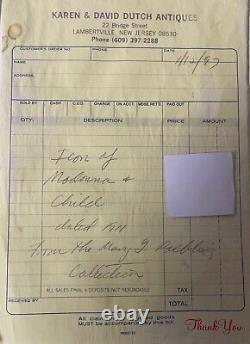 KAREN & DAVID DUTCH ANTIQUES
22 Bridge Street
LAMBERTVILLE, NEW JERSEY 08530
Phone (609) 397-2288
CUSTOMER'S ORDER NO. PHONE DATE
NAME
ADDRESS
SOLD BY CASH C.O.D. CHARGE ON ACCT. MDSE. RETD. PAID OUT
QTY. DESCRIPTION PRICE AMOUNT
Icon of
Madonna &
Child
dated
from the Mary
Collection
ALL SALES FINAL • DEPOSITS NOT REFUNDABLE TAX
RECEIVED BY TOTAL
All claims and returned goods
MUST be accompanied by this bill.
Thank You